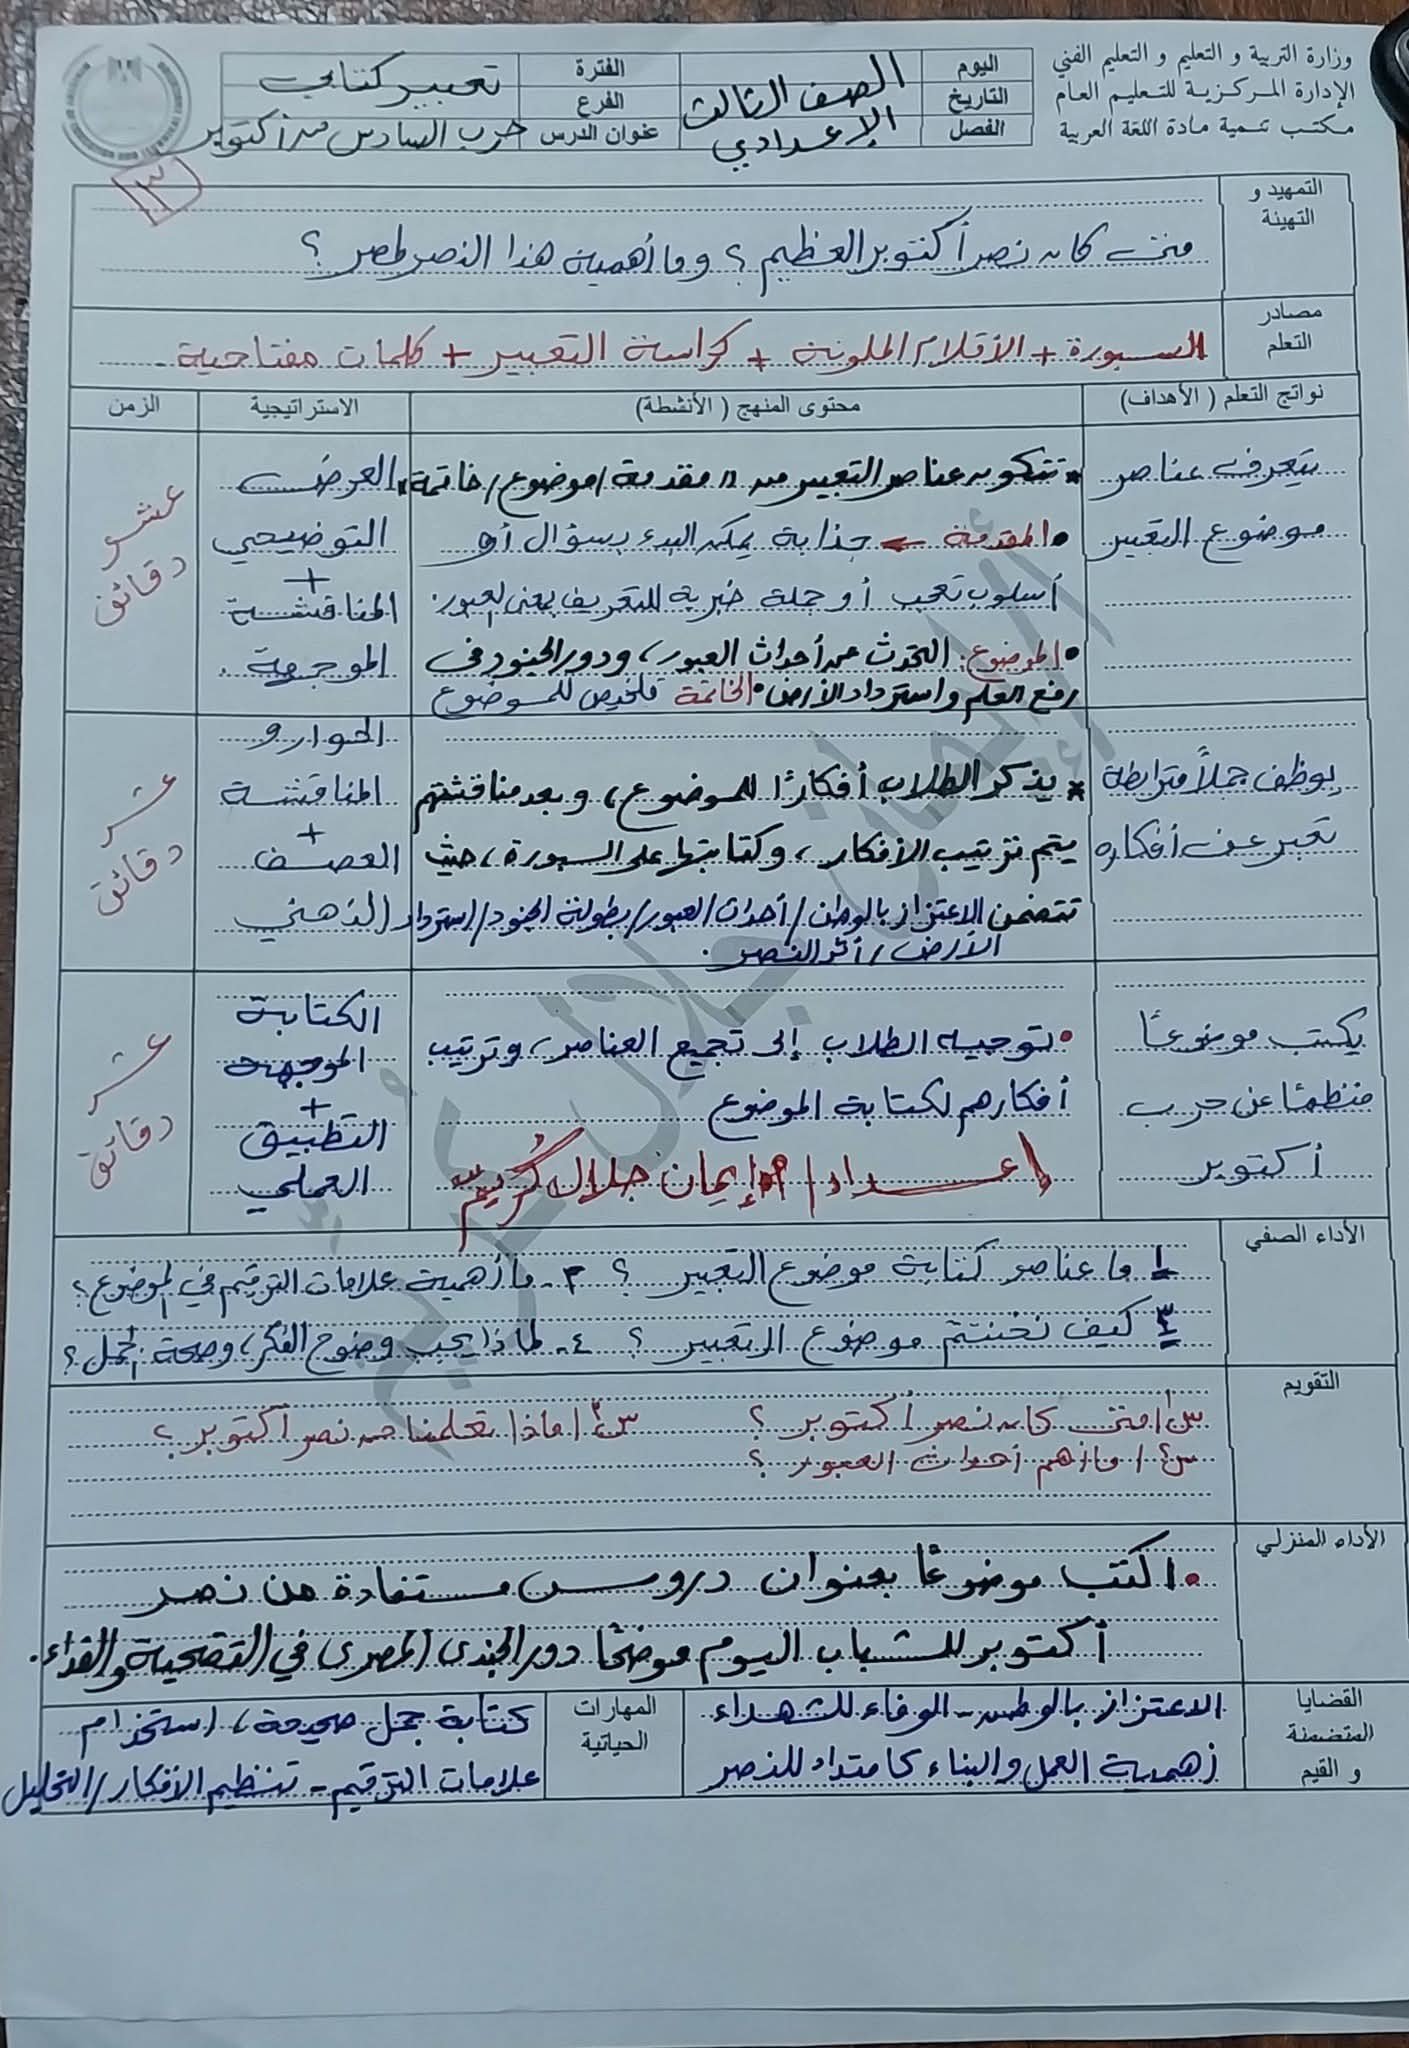 وزارة التربية و التعليم و التعليم الفني
الإدارة المركزية للتعليم العام
مكتب تنمية مادة اللغة العربية
اليوم
التاريخ
الفصل
الصف الثالث
الإعدادي
الفترة
الفرع
عنوان الدرس
تعبير كتابي
حرب السادس من أكتوبر
١٣
التمهيد و
التهيئة
متى كان نصر أكتوبر العظيم؟ وما أهمية هذا النصر لمصر؟
مصادر
التعلم
السبورة + الأقلام الملونة + كراسة التعبير + كلمات مفتاحية
نواتج التعلم ( الأهداف)
محتوى المنهج ( الأنشطة)
الاستراتيجية
الزمن
يتعرف عناصر
موضوع التعبير
* تتكون عناصر التعبير من " مقدمة / موضوع / خاتمة"
• المقدمة ← جذابة يمكن البدء بسؤال أو
أسلوب تعجب أو جملة خبرية للتعريف بمعنى العبور.
• الموضوع: التحدث عن أحداث العبور، ودور الجنود في
رفع العلم واسترداد الأرض • الخاتمة تلخيص للموضوع
العرض
التوضيحي
+
المناقشة
الموجهة.
عشر
دقائق
يوظف جملاً مترابطة
تعبر عن أفكاره
* يذكر الطلاب أفكارًا للموضوع، وبعد مناقشتهم
يتم ترتيب الأفكار، وكتابتها على السبورة، حيث
تتضمن الاعتزاز بالوطن / أحداث العبور / بطولة الجنود / استرداد
الأرض / أثر النصر.
الحوار و
المناقشة
+
العصف
الذهني
عشر
دقائق
يكتب موضوعًا
منظمًا عن حرب
أكتوبر
• توجيه الطلاب إلى تجميع العناصر، وترتيب
أفكارهم لكتابة الموضوع
إعداد / أ إيمان جلال كُريّم
الكتابة
الموجهة
+
التطبيق
العملي
عشر
دقائق
إيمان جلال كُريّم
الأداء الصفي
١ ما عناصر كتابة موضوع التعبير؟ ٢- ما أهمية علامات الترقيم في الموضوع؟
٣ كيف نختتم موضوع التعبير؟ ٤- لماذا يجب وضوح الفكر، وصحة الجمل؟
التقويم
س١/ متى كان نصر أكتوبر؟ س٢/ ماذا تعلمنا من نصر أكتوبر؟
س٣/ ما أهم أحداث العبور؟
الأداء المنزلي
• اكتب موضوعًا بعنوان دروس مستفادة من نصر
أكتوبر للشباب اليوم موضحًا دور الجندي المصري في التضحية والفداء.
القضايا
المتضمنة
و القيم
الاعتزاز بالوطن - الوفاء للشهداء
أهمية العمل والبناء كامتداد للنصر
المهارات
الحياتية
كتابة جمل صحيحة، استخدام
علامات الترقيم - تنظيم الأفكار / التحليل